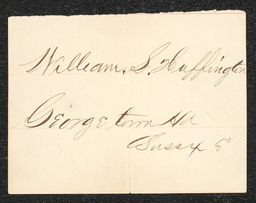 William. S. Huffington
Georgetown Hd
Sussex C